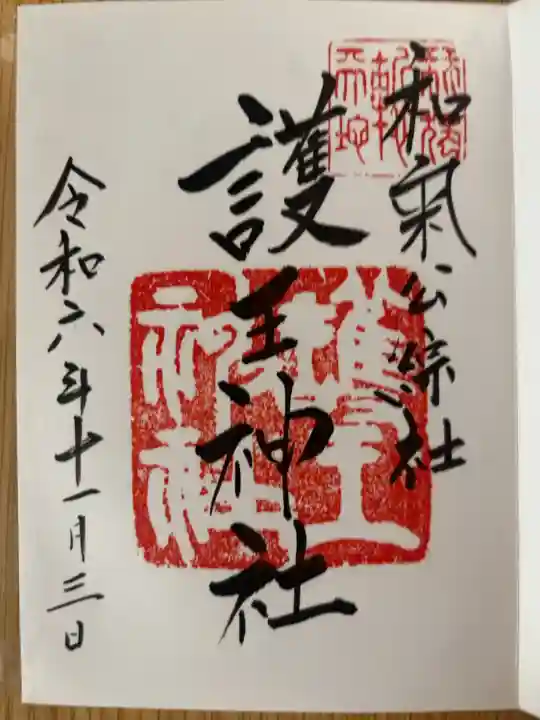 和氣公綜社
護王神社
令和六年十一月三日
護王神社